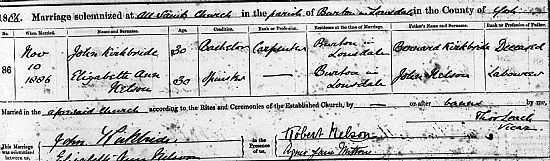 1886. Marriage solemnized at All Saints Church in the parish of Burton in Lonsdale in the County of York
When Married. Name and Surname. Age. Condition. Rank or Profession. Residence at the time of Marriage. Father's Name and Surname. Rank or Profession of Father.
86 Nov 10 1886 John Kirkbride 30 Bachelor Carpenter Burton in Lonsdale Bernard Kirkbride Deceased
Elizabeth Ann Nelson 30 Spinster Burton in Lonsdale John Nelson Labourer
Married in the aforesaid Church according to the Rites and Ceremonies of the Established Church, by — or after banns by me,
Vicar
This Marriage was solemnized between us, John Kirkbride in the Presence of us, Robert Nelson
Elizabeth Ann Nelson Agnes Jane